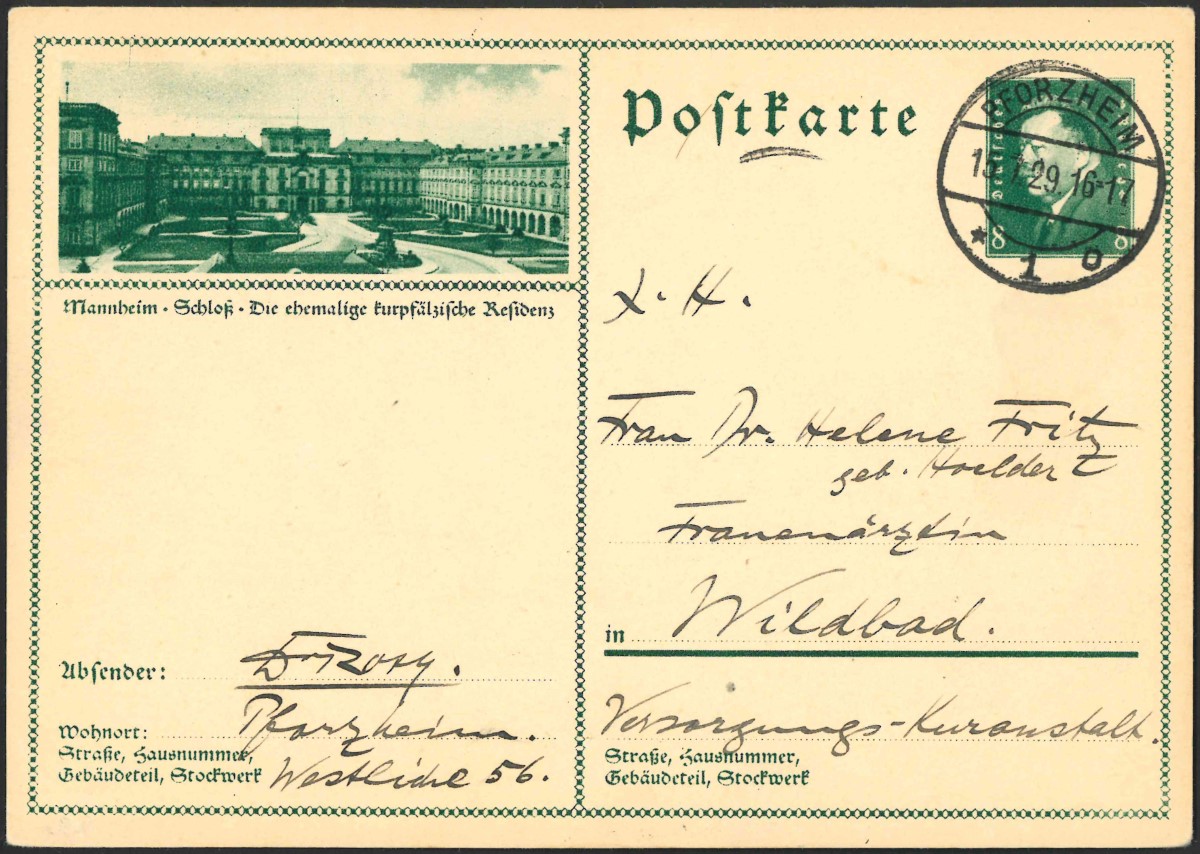 Mannheim · Schloß · Die ehemalige kurpfälzische Residenz
Postkarte
PFORZHEIM
29. 16-17
* 1 o
8 8
X. H.
Frau Dr. Helene Fritz
geb. Hoelder
Frauenärztin
in Wildbad.
Versorgungs-Kuranstalt.
Straße, Hausnummer,
Gebäudeteil, Stockwerk
Absender:
Wohnort: Pforzheim.
Straße, Hausnummer,
Gebäudeteil, Stockwerk Westliche 56.